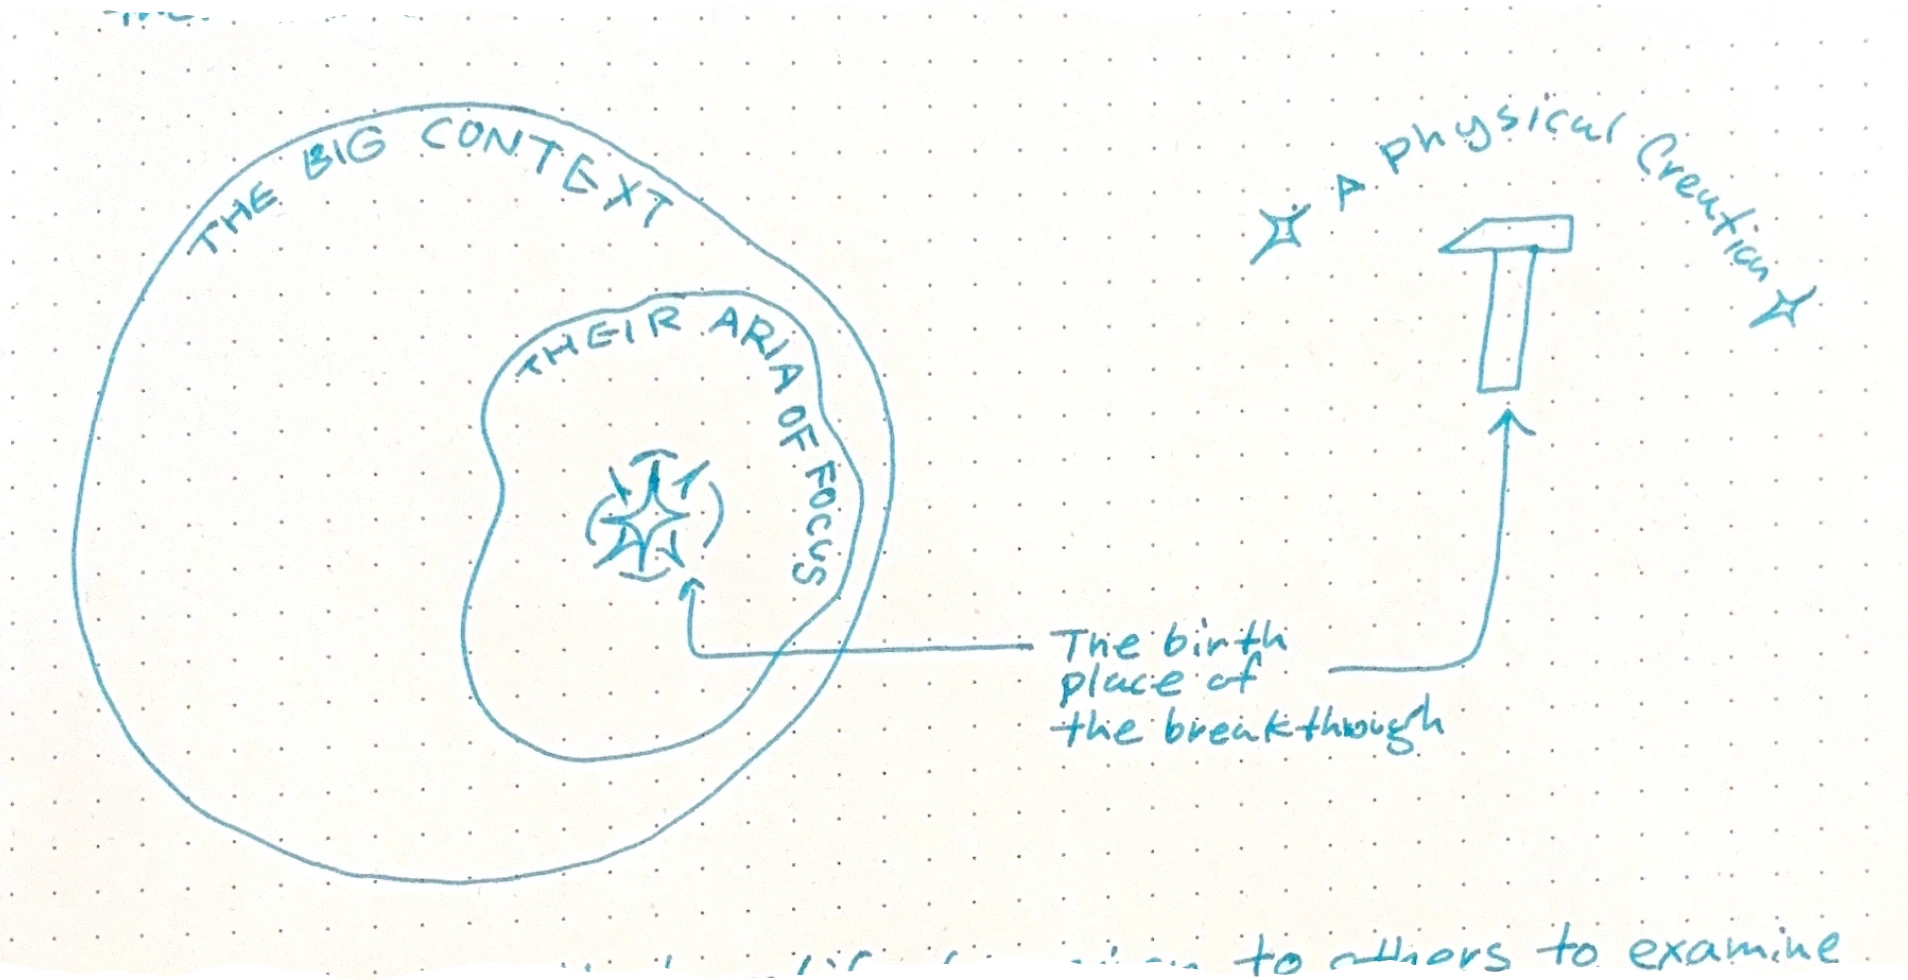 THE BIG CONTEXT
A physical Creation
THEIR ARIA OF FOCUS
The birth
place of
the breakthrough
to others to examine